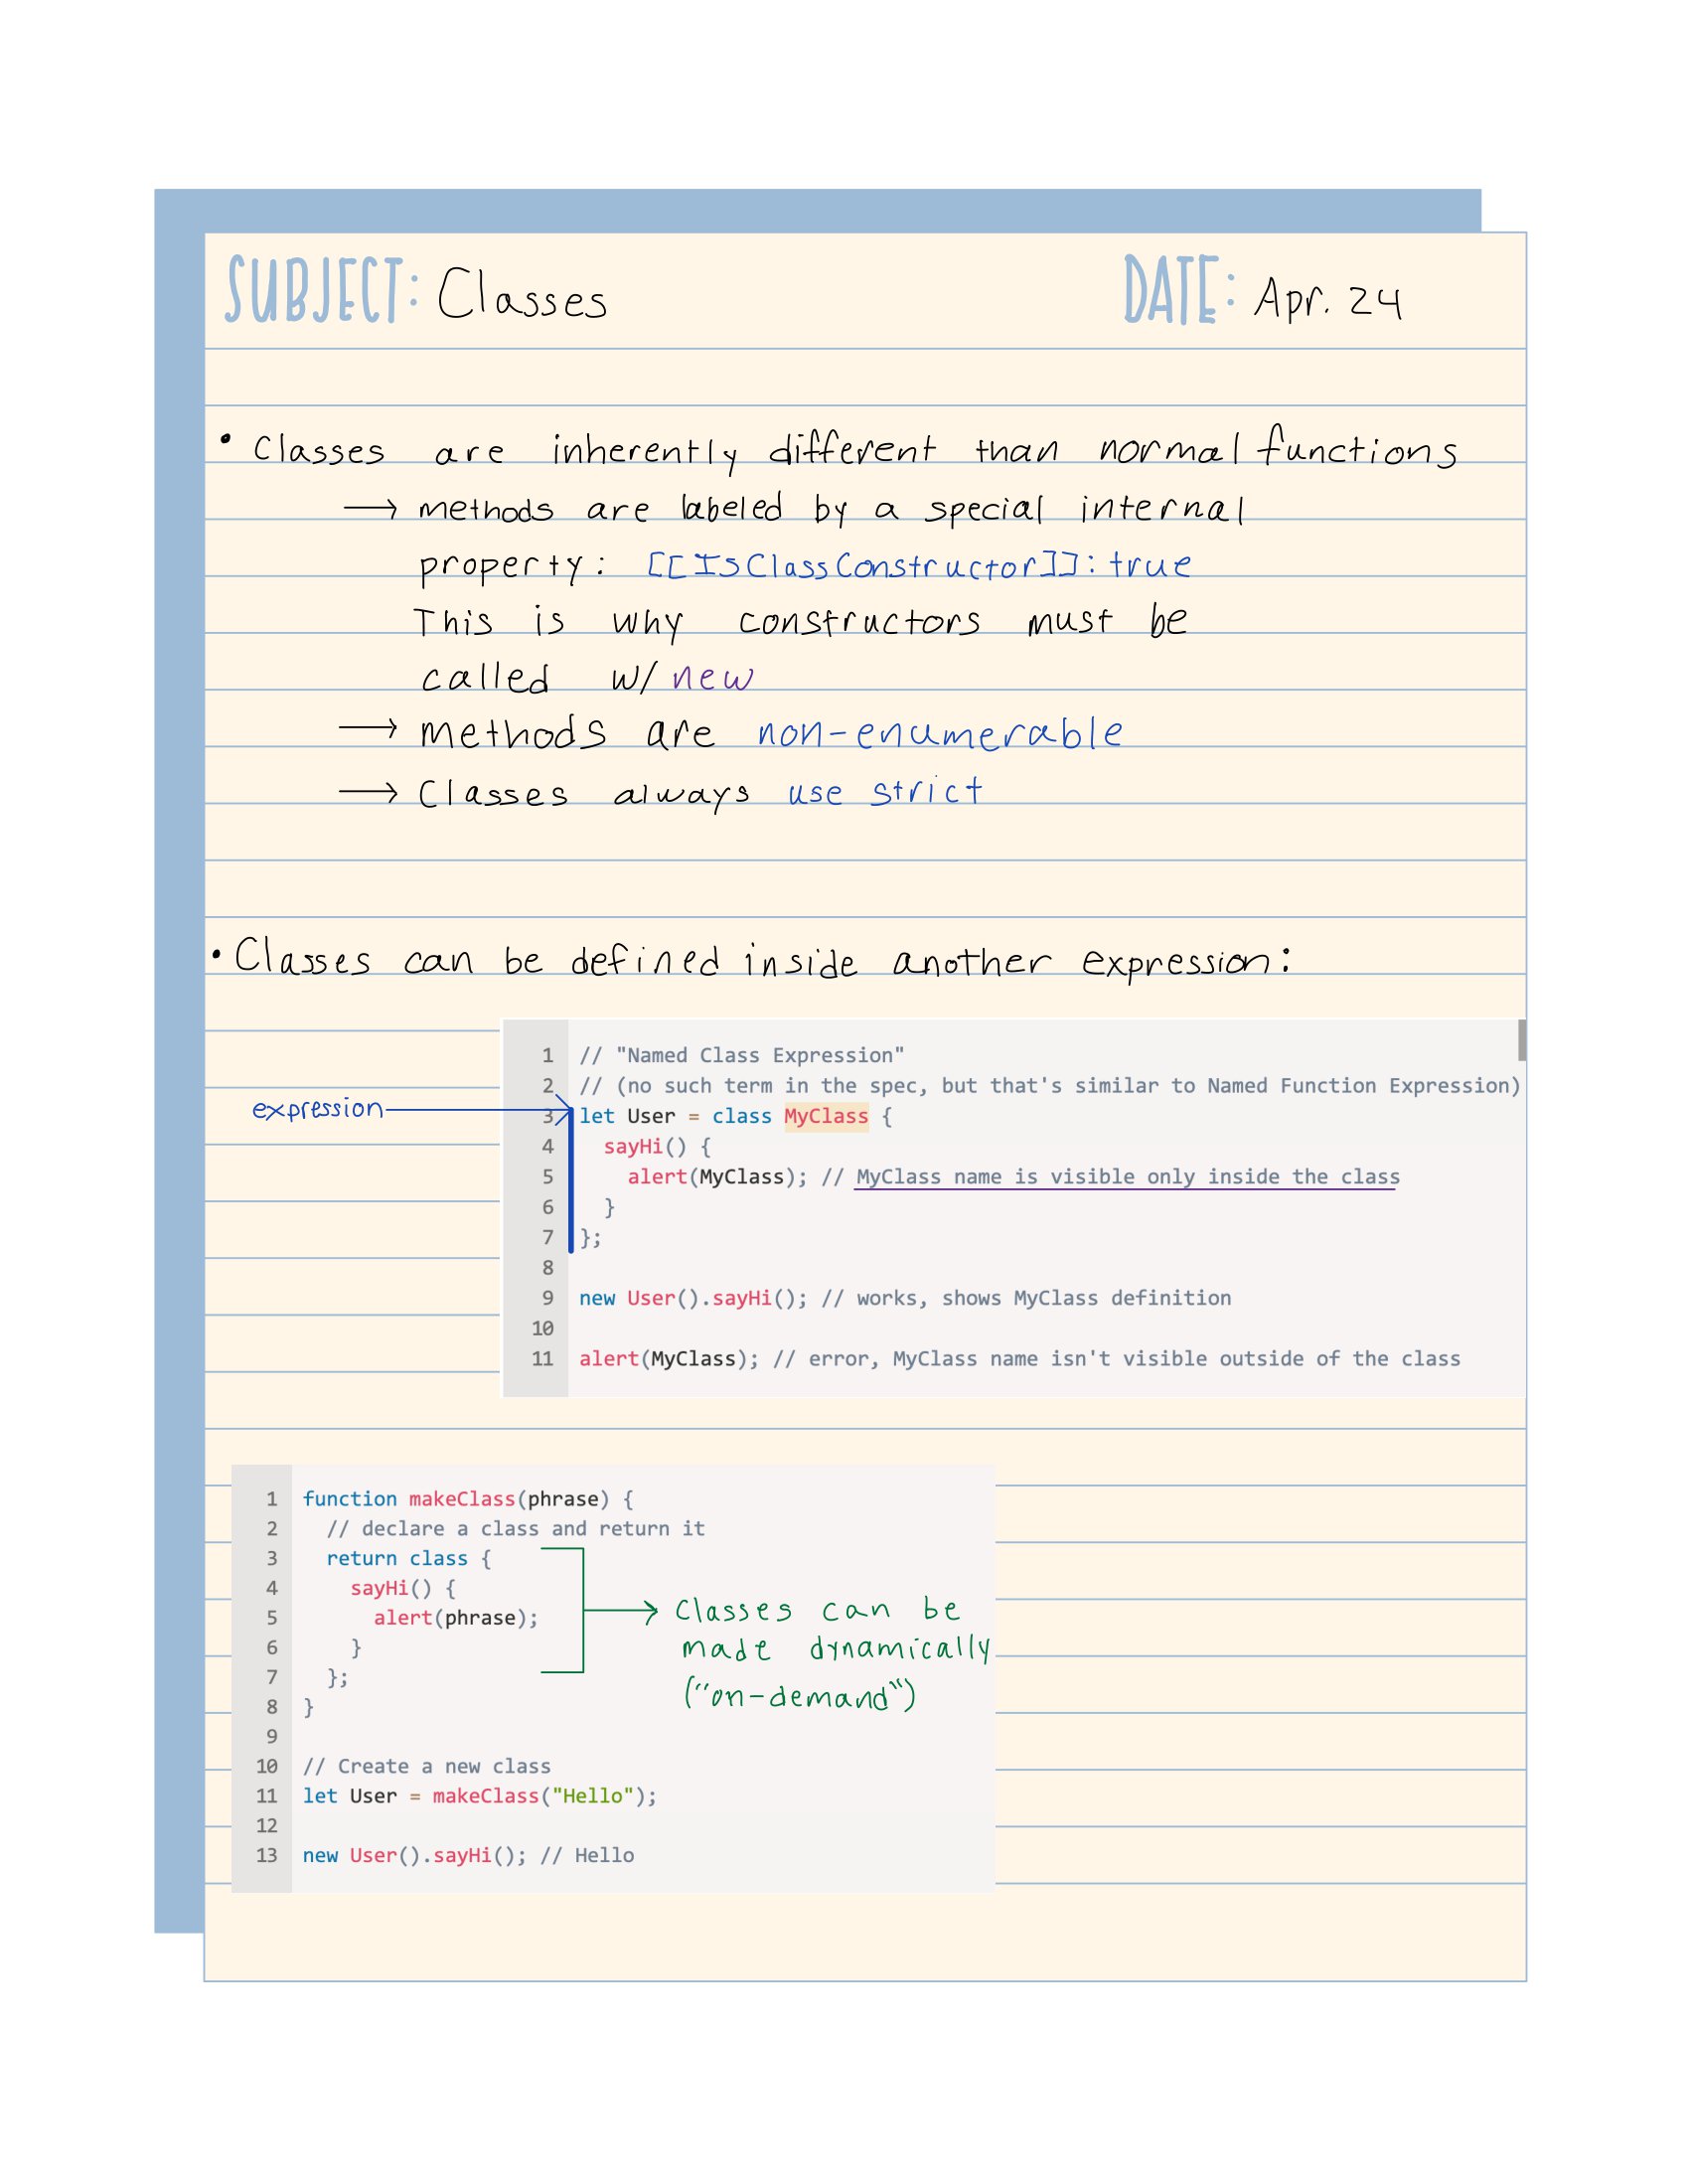 SUBJECT: Classes DATE: Apr. 24
• Classes are inherently different than normal functions
→ methods are labeled by a special internal
property: [[IsClassConstructor]]: true
This is why constructors must be
called w/ new
→ methods are non-enumerable
→ Classes always use strict
• Classes can be defined inside another expression:
1 // "Named Class Expression"
2 // (no such term in the spec, but that's similar to Named Function Expression)
expression → 3 let User = class MyClass {
4 sayHi() {
5 alert(MyClass); // MyClass name is visible only inside the class
6 }
7 };
8
9 new User().sayHi(); // works, shows MyClass definition
10
11 alert(MyClass); // error, MyClass name isn't visible outside of the class
1 function makeClass(phrase) {
2 // declare a class and return it
3 return class {
4 sayHi() {
5 alert(phrase);
6 }
7 };
8 }
9
10 // Create a new class
11 let User = makeClass("Hello");
12
13 new User().sayHi(); // Hello
→ Classes can be
made dynamically
("on-demand")